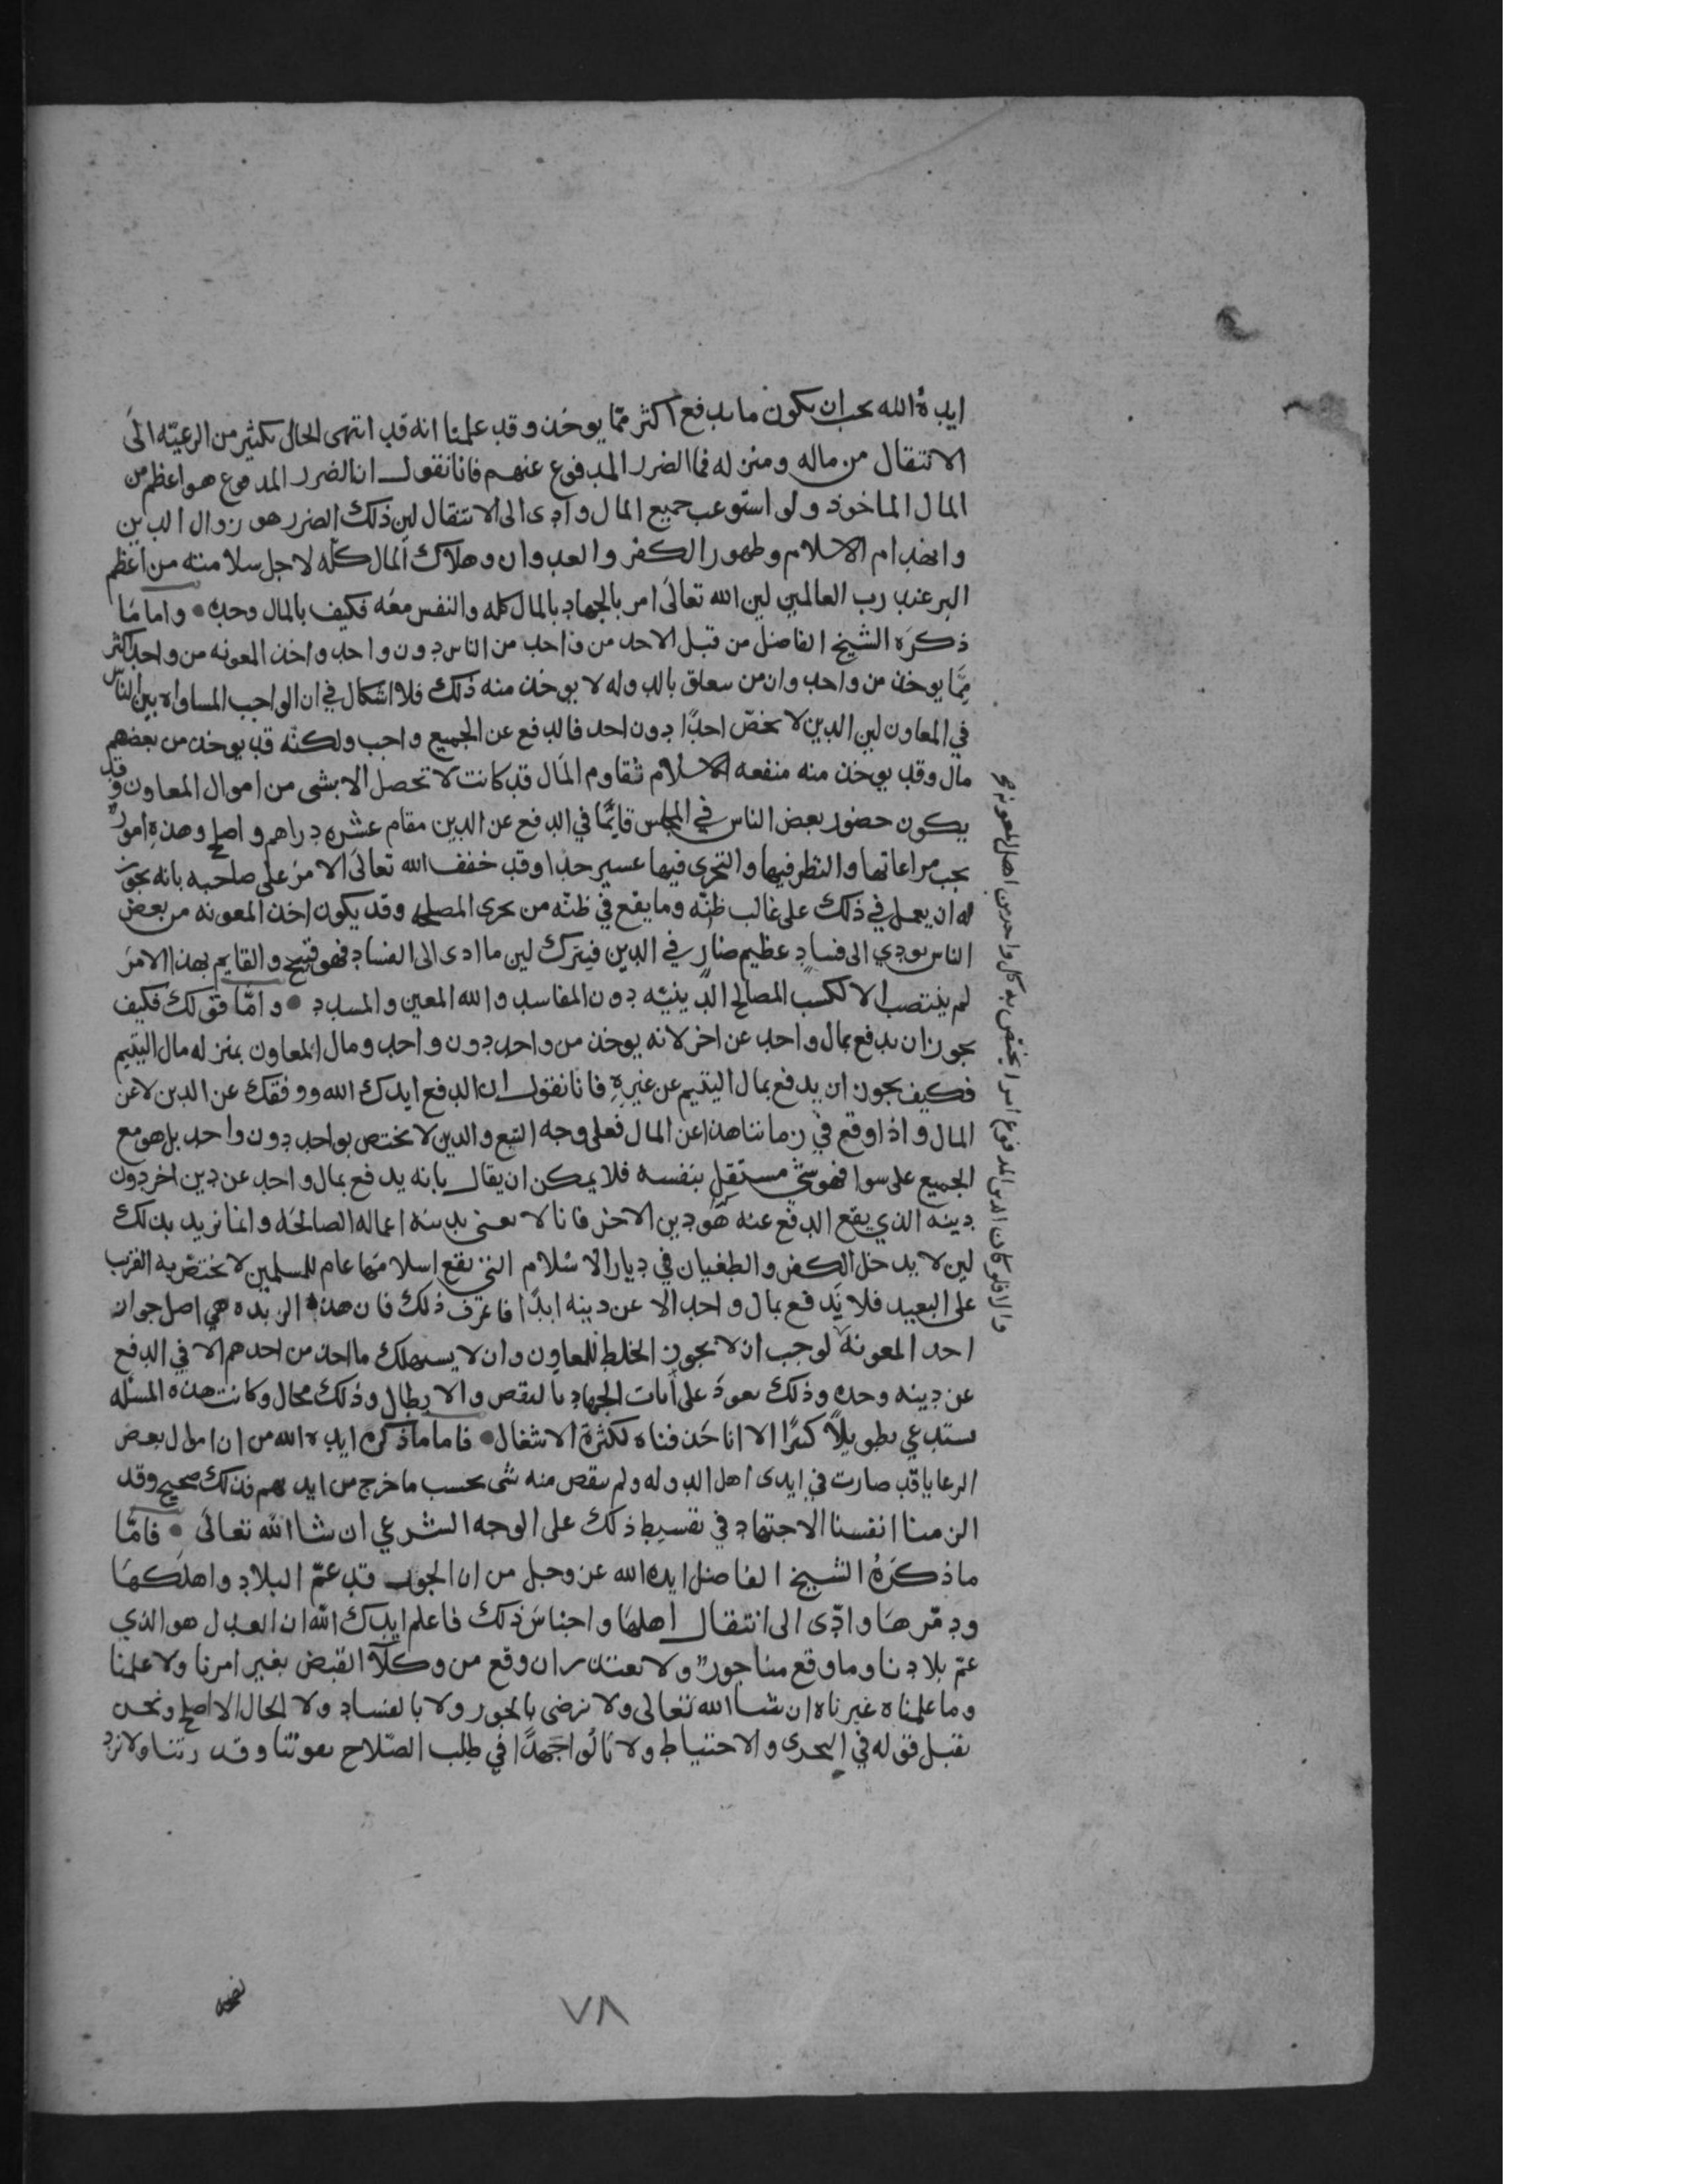 ايده الله يجب ان يكون ما يدفع اكثر مما يوخذ وقد علمنا انه قد انتهى الحال بكثير من الرعيه الى
الانتقال من ماله ومنزله فما الضرر المدفوع عنهم فانا نقول ان الضرر المدفوع هو اعظم من
المال الماخوذ ولو استوعب جميع المال وادى الى الانتقال لين ذلك الضرر هو زوال الدين
وانهدام الاسلام وظهور الكفر والعدوان وهلاك المال كله لاجل سلامته من اعظم
البر عند رب العالمين لين الله تعالى امر بالجهاد بالمال كله والنفس معه فكيف بالمال وحده • واما ما
ذكره الشيخ الفاضل من قبل الاحد من واحد من الناس دون واحد واخذ المعونه من واحد اكثر
مما يوخذ من واحد وان من يتعلق بالدوله لا يوخذ منه ذلك فلا اشكال في ان الواجب المساواه بين الناس
في المعاون لين الدين لا يخص احدًا دون احد فالدفع عن الجميع واجب ولكنه قد يوخذ من بعضهم
مال وقد يوخذ منه منفعه الاسلام تقاوم المال قد كانت لا تحصل الا بشي من اموال المعاون وقد
يكون حضور بعض الناس في المجلس قايمًا في الدفع عن الدين مقام عشره دراهم واصلح وهذه امور
يجب مراعاتها والنظر فيها والتحرى فيها عسير جدا وقد خفف الله تعالى الامر على صاحبه بانه يجوز
له ان يعمل في ذلك على غالب ظنه وما يقع في ظنه من تحرى المصلحه وقد يكون اخذ المعونه من بعض
الناس يودي الى فساد عظيم ضار في الدين فيترك لين ما ادى الى الفساد فهو قبيح والقايم بهذا الامر
لم ينتصب الا لكسب المصالح الدينيه دون المفاسد والله المعين والمسدد • واما قولك فكيف
يجوز ان يدفع بمال واحد عن اخر لانه يوخذ من واحد دون واحد ومال المعاون بمنزله مال اليتيم
فكيف يجوز ان يدفع بمال اليتيم عن غيره فانا نقول ان الدفع ايدك الله ووفقك عن الدين لا عن
المال واذا وقع في زماننا هذا عن المال فعلى وجه التبع والدين لا يختص بواحد دون واحد بل هو مع
الجميع على سوا فهو شي مستقل بنفسه فلا يمكن ان يقال بانه يدفع بمال واحد عن دين اخر دون
دينه الذي يقع الدفع عنه هو دين الاخر فانا لا نعني بدينه اعماله الصالحه وانما نريد بذلك
لين لا يدخل الكفر والطغيان في ديار الاسلام التي نفع اسلامها عام للمسلمين لا يختص به القريب
على البعيد فلا يدفع بمال واحد الا عن دينه ابدًا فاعرف ذلك فان هذه الزبده هي اصل جواز
اخذ المعونه لوجب ان لا يجوز الخلط للمعاون وان لا يستهلك ما اخذ من احدهم الا في الدفع
عن دينه وحده وذلك يعود على ايات الجهاد بالنقص والابطال وذلك محال وكانت هذه المسئله
تستدعي تطويلًا كثيرًا الا انا حذفناه لكثرة الاشغال • فاما ما ذكره ايده الله من ان اموال بعض
الرعايا قد صارت في ايدى اهل الدوله ولم ينقص منه شى بحسب ما خرج من ايديهم فذلك صحيح وقد
الزمنا انفسنا الاجتهاد في تقسيط ذلك على الوجه الشرعي ان شا الله تعالى • فامّا
ما ذكره الشيخ الفاضل ايده الله عز وجل من ان الجور قد عمّ البلاد واهلكها
ودمّرها وادّى الى انتقال اهلها واجناس ذلك فاعلم ايدك الله ان العدل هو الذي
عمّ بلادنا وما وقع منا جور ولا نعتذر ان وقع من وكلا القبض بغير امرنا ولا علمنا
وما علمناه غيرناه ان شا الله تعالى ولا نرضى بالجور ولا بالفساد ولا الحال الا صلح ونحن
نقبل قوله في التحرى والاحتياط ولا نالوا جهدًا في طلب الصلاح بقوتنا وقدرتنا ولا نرد
والا فلو كان الدين المدفوع امرا يختص به كل واحد من اهل المعونه
٧٨